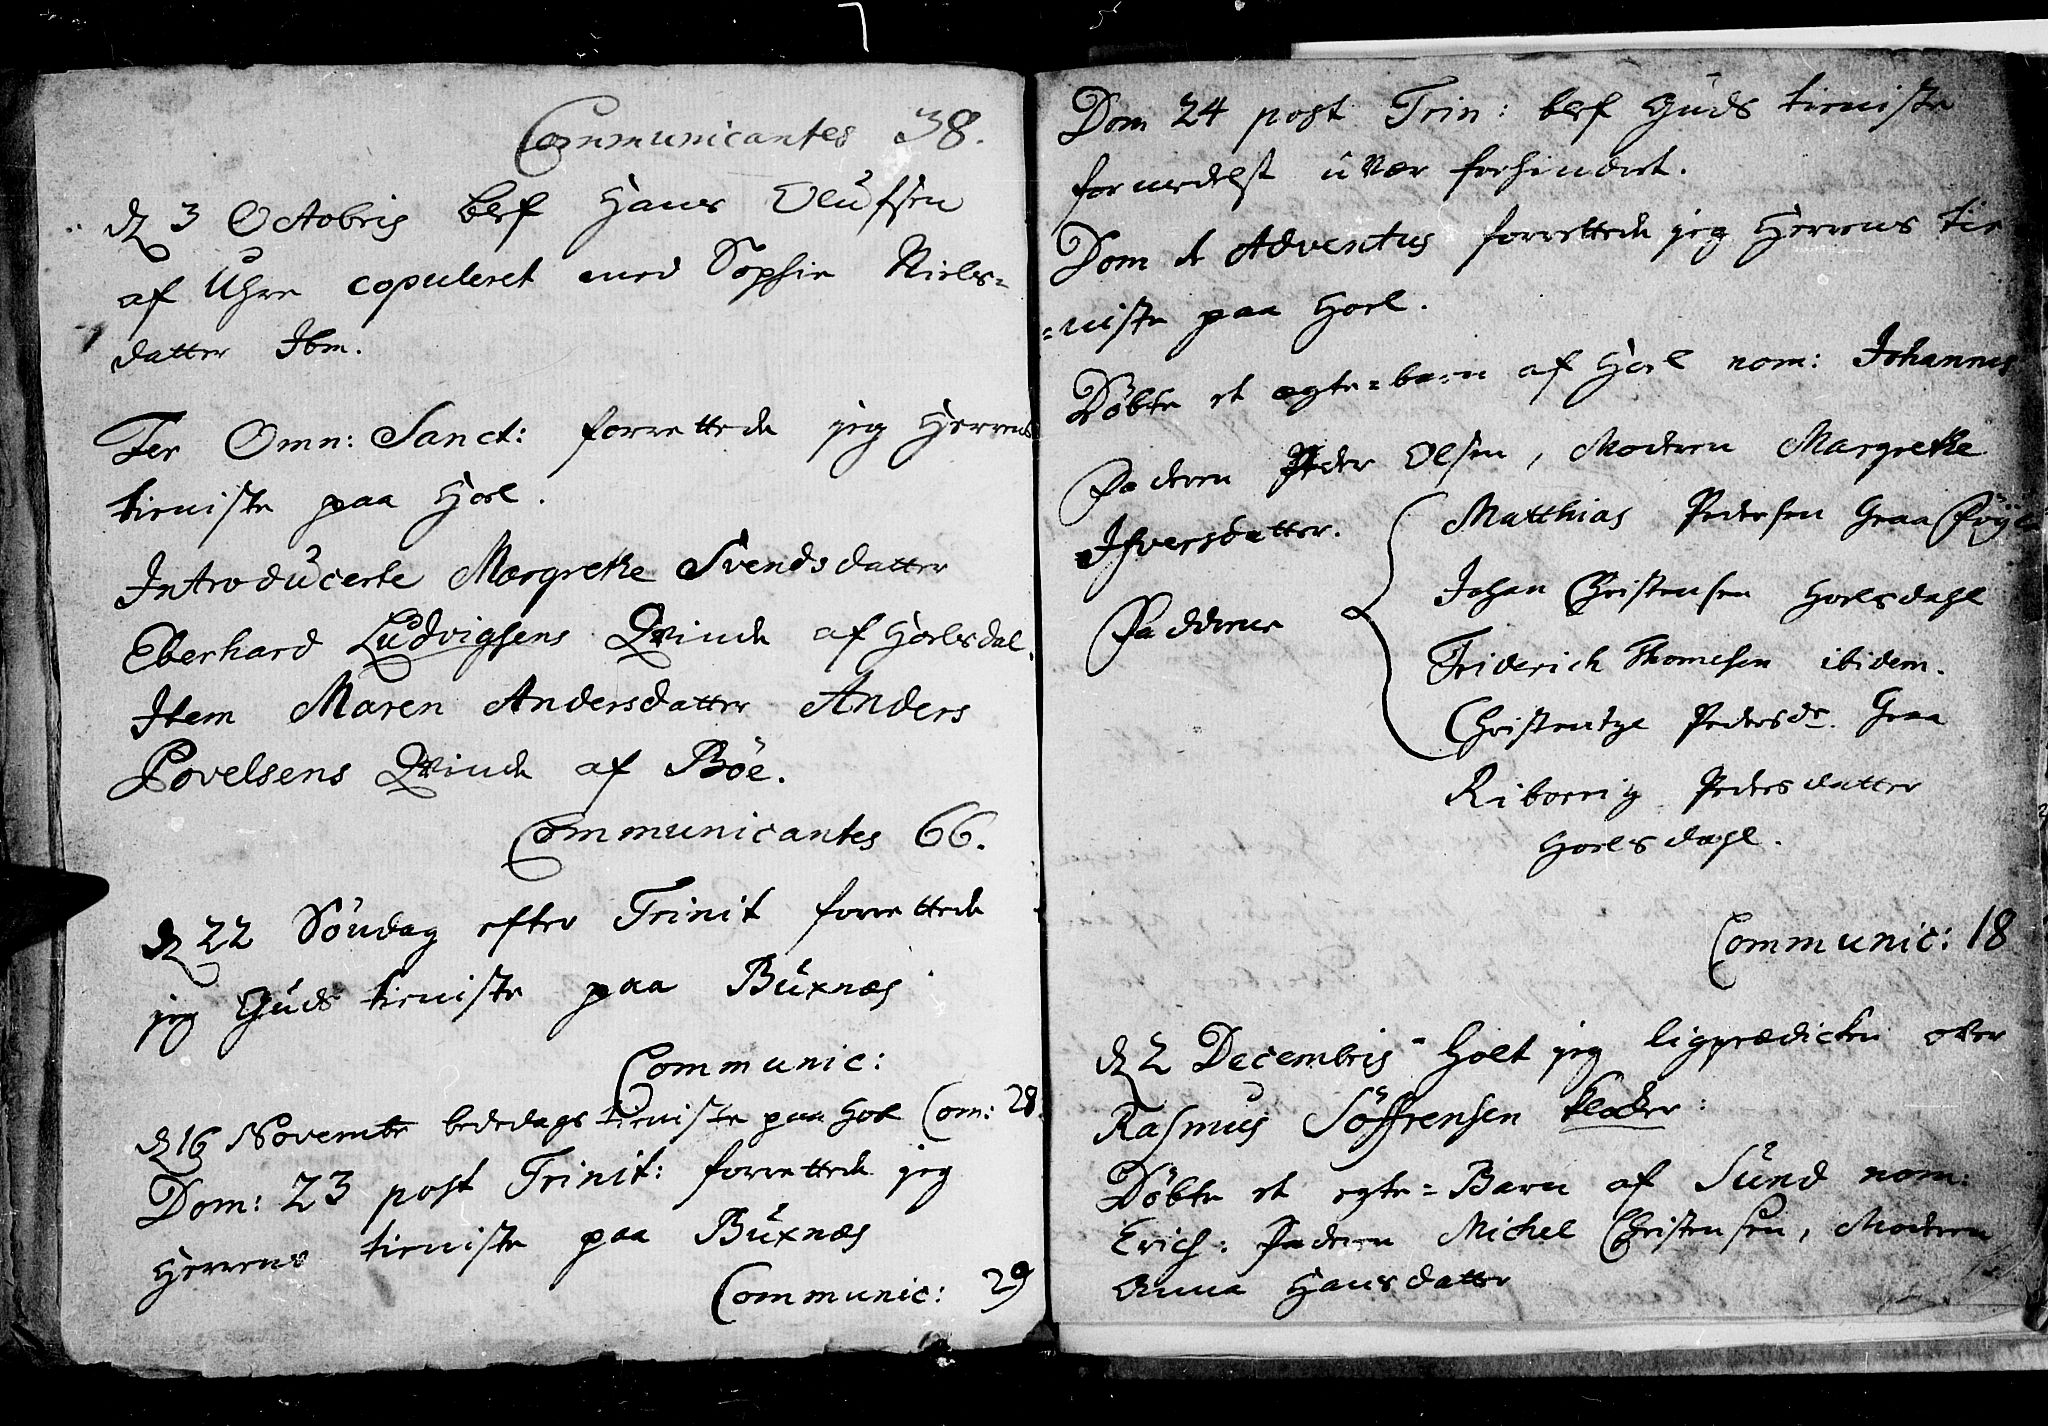 Communicantes 38.
d 3 Octobris blef Hans Olufsen
af Uhre copuleret med Sophie Niels=
datter Ibm.
Fer Omn: Sanct: forrettede jeg Herrens
tieniste paa Hoel.
Introducerte Margrethe Svendsdatter
Eberhard Ludvigsens Qvinde af Hoelsdal.
Item Maren Andersdatter Anders
Povelsens Qvinde af Böe.
Communicantes 66.
d 22 Söndag efter Trinit forrettede
jeg Guds tieniste paa Buxnæs
Communic:
d 16 Novembr bededags tieniste paa Hol Com: 28.
Dom: 23 post Trinit: forrettede jeg
Herrens tieniste paa Buxnæs
Communic: 29
Dom 24 post Trin: blef Guds tieniste
formedelst uvær forhindret.
Dom 1 Adventus forrettede jeg Herrens tie
=niste paa Hoel.
Döbte et ægte=barn af Hoel nom: Johannes
Faderen Peder Olsen, Moderen Margrethe
Ifversdatter.
Fadderne
Matthias Pedersen Graa
Johan Christensen Hoelsdahl
Friderich Thomesen ibidem.
Christentze Pedersdr. Graa
Riborrig Pedersdatter
Hoelsdahl.
Communic: 18
d 2 Decembris holt jeg ligprædicken over
Rasmus Söffrensen Klocker:
Döbte et egte=Barn af Sund nom:
Erich: Faderen Michel Christensen, Moderen
Anna Hansdatter